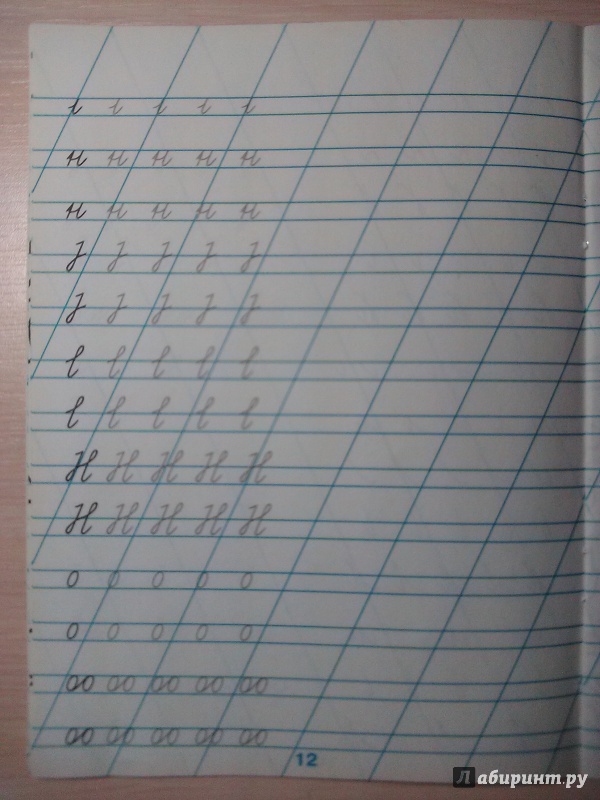 н н н н н
н н н н н
Н Н Н Н Н
Н Н Н Н Н
о о о о о
о о о о о
оо оо оо оо оо
оо оо оо оо оо
12
Лабиринт.ру